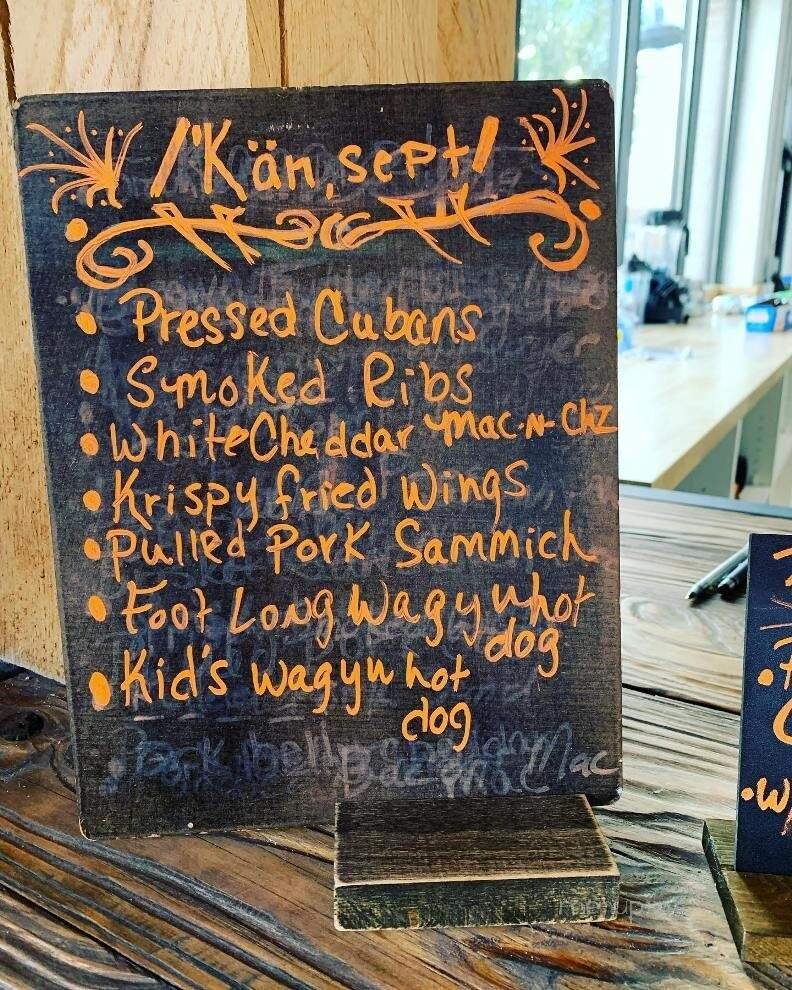 /'Kän,sept/
• Pressed Cubans
• Smoked Ribs
• White Cheddar Mac-N-Chz
• Krispy fried Wings
• Pulled Pork Sammich
• Foot Long Wagyu hot
dog
• Kid's wagyu hot
dog
Mac